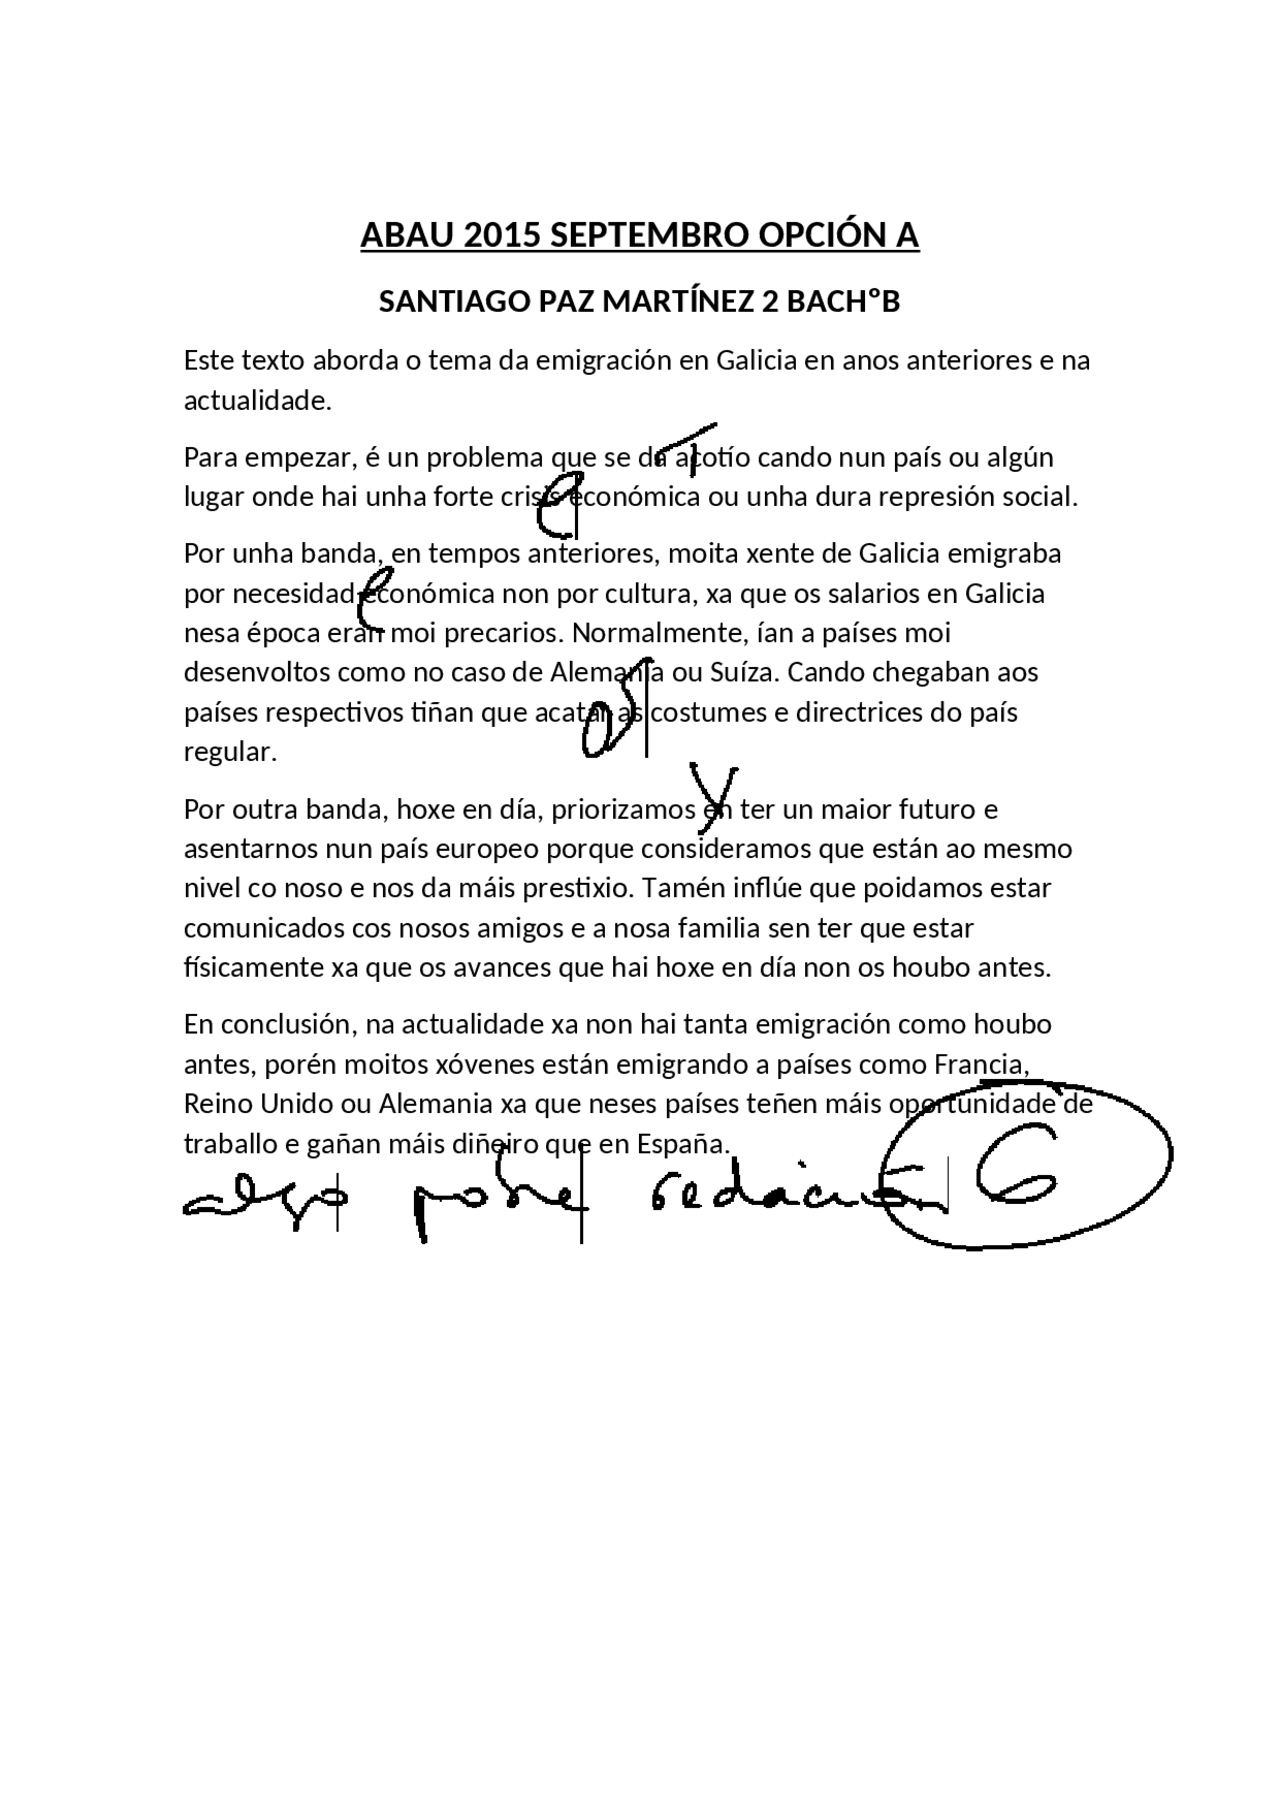 ABAU 2015 SEPTEMBRO OPCIÓN A
SANTIAGO PAZ MARTÍNEZ 2 BACHºB
Este texto aborda o tema da emigración en Galicia en anos anteriores e na
actualidade.
Para empezar, é un problema que se da acotío cando nun país ou algún
lugar onde hai unha forte crisis económica ou unha dura represión social.
e
Por unha banda, en tempos anteriores, moita xente de Galicia emigraba
por necesidad económica non por cultura, xa que os salarios en Galicia
e
nesa época eran moi precarios. Normalmente, ían a países moi
desenvoltos como no caso de Alemania ou Suíza. Cando chegaban aos
países respectivos tiñan que acatar as costumes e directrices do país
os
regular.
Por outra banda, hoxe en día, priorizamos en ter un maior futuro e
asentarnos nun país europeo porque consideramos que están ao mesmo
nivel co noso e nos da máis prestixio. Tamén inflúe que poidamos estar
comunicados cos nosos amigos e a nosa familia sen ter que estar
físicamente xa que os avances que hai hoxe en día non os houbo antes.
En conclusión, na actualidade xa non hai tanta emigración como houbo
antes, porén moitos xóvenes están emigrando a países como Francia,
Reino Unido ou Alemania xa que neses países teñen máis oportunidade de
traballo e gañan máis diñeiro que en España.
algo pobre redacción 6